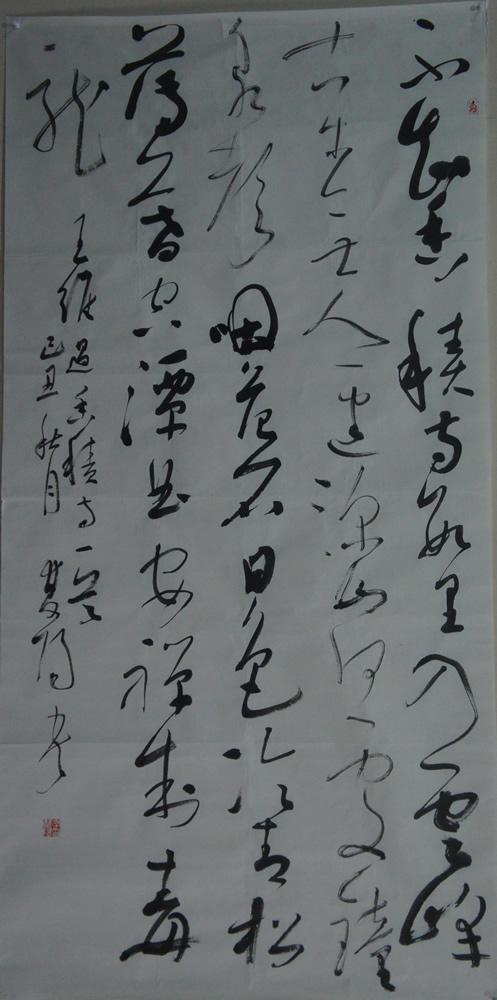 不知香積寺數里入雲峰
古木無人逕深山何處鐘
泉聲咽危石日色冷青松
薄暮空潭曲安禪制毒
龍
王維過香積寺一首
己丑秋月